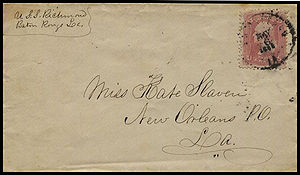 U.S.S. Richmond
Baton Rouge La.
MAY
Miss Kate Slaven
New Orleans P.O.
La.